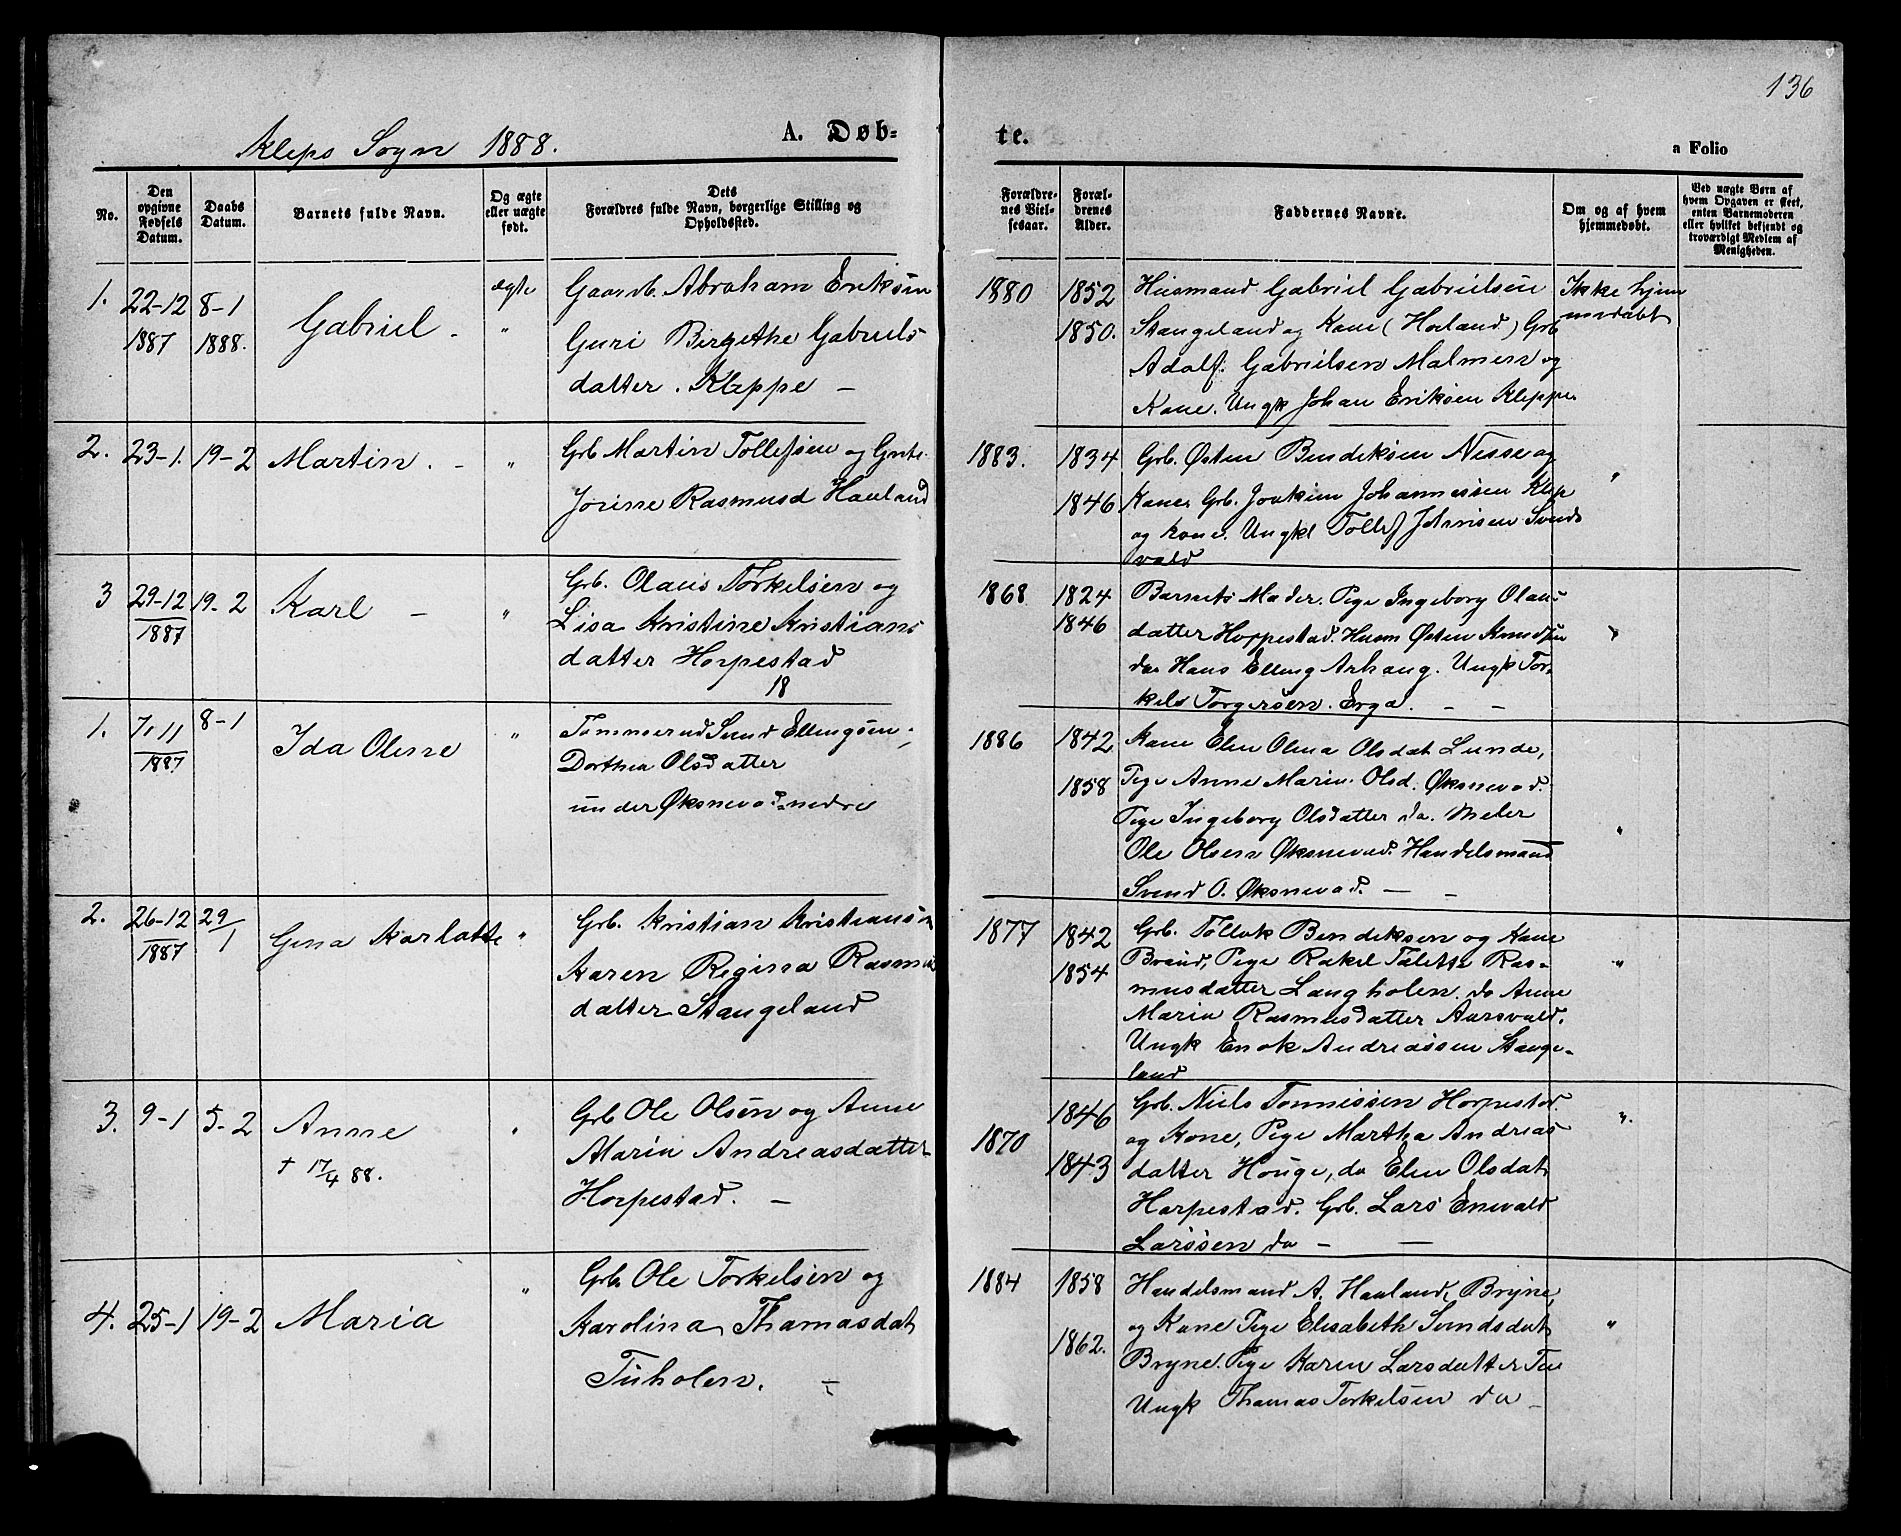 136
Kleps Sogn 1888.
A. Døb-
te.
a Folio
No.
Den opgivne Fødsels Datum.
Daabs Datum.
Barnets fulde Navn.
Og ægte eller uægte født.
Dets Forældres fulde Navn, borgerlige Stilling og Opholdssted.
Forældrenes Vielsesaar.
Forældrenes Alder.
Faddernes Navne.
Om og af hvem hjemmedøbt.
Ved uægte Børn af hvem Opgaven er skeet, enten Barnemoderen eller hvilket bekjendt og troværdigt Medlem af Menigheden.
1.
22-12
1887
8-1
1888.
Gabriel -
ægte
"
Gaardb. Abraham Eriksen
Guri Birgethe Gabriels
datter. Kleppe -
1880
1852
1850.
Husmand Gabriel Gabrielsen
Stangeland og Kone (Horland) Grb
Adolf Gabrielsen Malmen og
Kone. Ungk Johan Eriksen Kleppe.
Ikke hjem
medøbt
2.
23-1.
19-2
Martin. -
"
Grb Martin Tollefsen og Gnte.
Jorine Rasmusd Hauland
1883.
1834
1846
Grb. Østen Bendiksen Nesse og
Kone. Grb. Joakim Johannessen Klep
og kone. Ungkl Tollef Johnsen Svends
vold
"
3
29-12
1887
19-2
Karl -
"
Grb. Olaus Torkelsen og
Lisa Kristine Kristians
datter Horpestad
18
1868
1824
1846
Barnets Moder. Pige Ingeborg Olaus
datter Horpestad. Husm Østen Knudsen
do Hans Elling Arhaug. Ungk Tor-
kels Torgersen. Erga. - -
"
1.
7-11
1887
8-1
Ida Oline
"
Tømmermd Svend Ellingsen,
Dorthea Olsdatter
under Øksnevad nedre
1886
1842
1858
Kone Elen Olena Olsdat Lunde,
Pige Anne Marie Olsd. Øksnevad.
Pige Ingeborg Olsdatter do. Meier
Ole Olsen Øksnevad. Handelsmand
Svend O. Øksnevad. - -
"
2.
26-12
1887
29/1
Gina Karlotte
"
Grb. Kristian Kristiansen
Karen Regina Rasmus
datter Stangeland
1877
1842
1854
Grb. Tollak Bendiksen og Kone
Braud, Pige Rakel Talette Ras-
musdatter Langholen. do Anne
Maria Rasmusdatter Aarsvold.
Ungk Enok Andreassen Stange-
land
"
3.
9-1
5-2
Anne
† 17/4 88.
"
Grb Ole Olsen og Anne
Maria Andreasdatter
Horpestad. -
1870
1846
1843
Grb. Niels Tonnissen Horpestad.
og Kone, Pige Martha Andreas
datter Houge, do Elen Olsdat
Horpestad. Grb. Lars Enevald
Larssen do - -
"
4.
25-1
19-2
Maria
"
Grb. Ole Torkelsen og
Karolina Thomasdat
Tuholen. -
1884
1858
1862.
Handelsmand A. Hauland, Bryne,
og Kone Pige Elisabeth Svendsdat
Bryne. Pige Karen Larsdatter Tu
Ungk Thomas Torkelsen do -
"